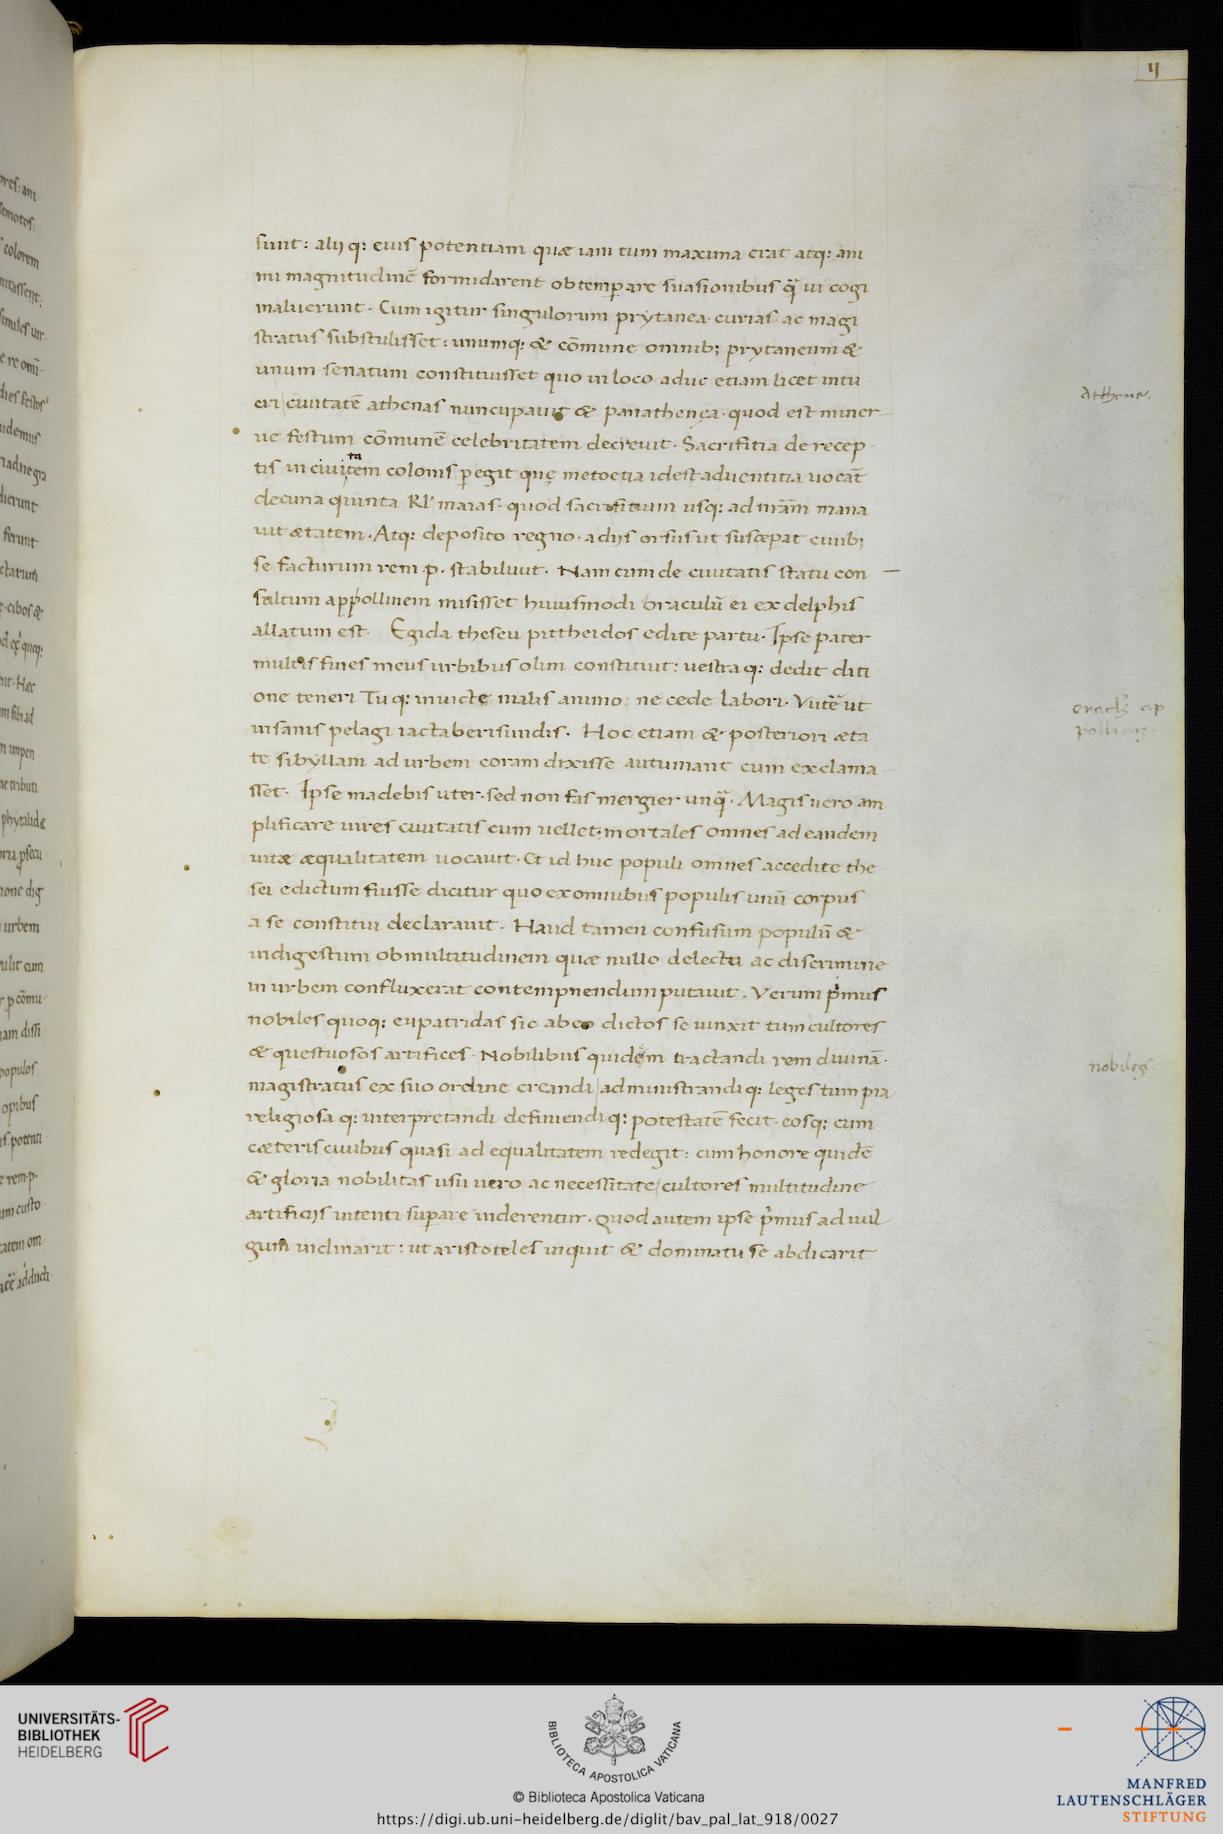 ij
sunt: alij q: eius potentiam quæ iam tum maxima erat atq: ani
mi magnitudinē formidarent obtemperare suasionibus q̃ ui cogi
maluerunt. Cum igitur singulorum prytanea. curias ac magi
stratus substulisset: unumq: & cōmune omnib; prytaneum &
unum senatum constituisset quo in loco aduc etiam licet intu
eri/ciuitatē athenas nuncupauit & panathenęa. quod est miner
ue festum cōmunē celebritatem decreuit. Sacrifitia de recep
tis in ciuitatem colonis pegit quę metoetia idest aduentitia uocāt
decima quinta Kl' maias. quod sacrifitium usq: ad nr̄ām mana
uit ætatem. Atq: deposito regno. adijs orsus ut susceperat ciuib;
se facturum rem .p. stabiliuit. Nam cum de ciuitatis statu con
sultum appollinem misisset huiusmodi oraculū ei ex delphis
allatum est. Egida theseu pittheidos edite partu. Ipse pater
multis fines meus urbibus olim constituit: uestraq: dedit diti
one teneri Tu q: inuicte malis animo: ne cede labori. Vutē ut
insanis pelagi iactaberis undis. Hoc etiam & posteriori æta
te sibyllam ad urbem coram dixisse autumant cum exclama
sset. Ipse madebis uter. sed non fas mergier unq̃. Magis uero am
plificare uires ciuitatis cum uellet: mortales omnes ad eandem
uitæ æqualitatem uocauit. Et id huc populi omnes accedite the
sei edictum fuisse dicitur quo ex omnibus populis unū corpus
a se constitui declarauit. Haud tamen confusum populū &
indigestum ob multitudinem quæ nullo delectu ac discrimine
in urbem confluxerat contempnendum putauit. Verum p̓mus
nobiles quoq: eupatridas sic ab eo dictos seiunxit tum cultores
& questuosos artifices. Nobilibus quidem tractandi rem diuinā.
magistratus ex suo ordine creandi/administrandiq: leges tum pia
religiosa q: interpretandi definiendiq: potestatē fecit. eosq: cum
cæteris ciuibus quasi ad equalitatem redegit: cum honore quidē
& gloria nobilitas usu uero ac necessitate/cultores multitudine
artificijs intenti superare uiderentur. Quod autem ipse p̓mus ad uul
gum inclinarit: ut aristoteles inquit & dominatu se abdicarit
Athene.
nobiles
UNIVERSITÄTS-
BIBLIOTHEK
HEIDELBERG
BIBLIOTECA APOSTOLICA VATICANA
© Biblioteca Apostolica Vaticana
https://digi.ub.uni-heidelberg.de/diglit/bav_pal_lat_918/0027
MANFRED
LAUTENSCHLÄGER
STIFTUNG